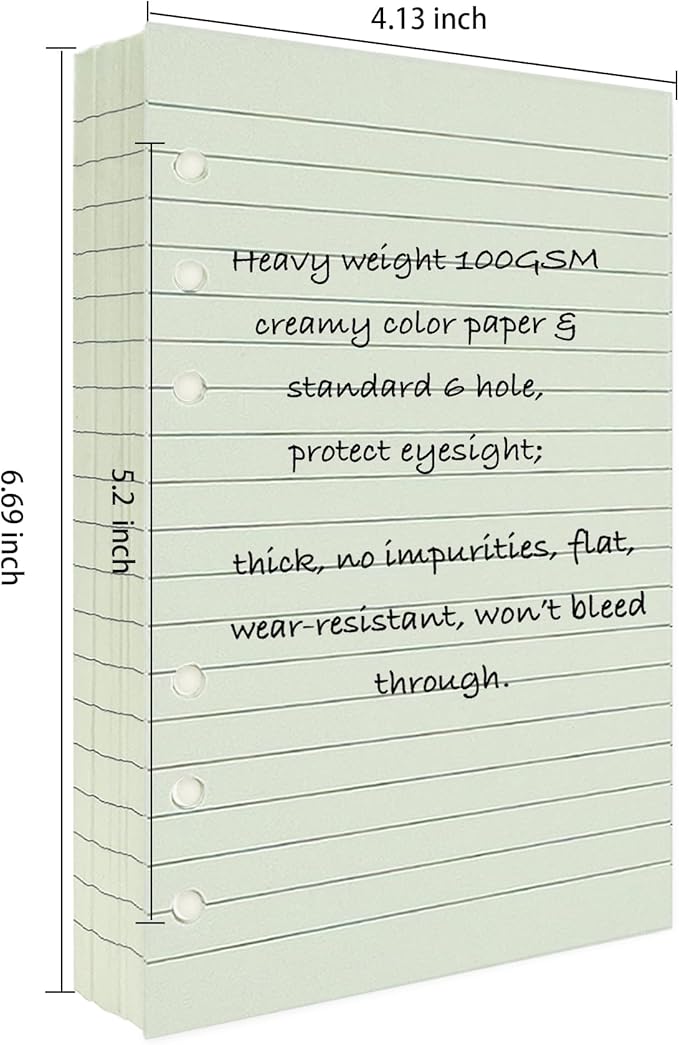 4.13 inch
6.69 inch
5.2 inch
Heavy weight 100GSM
creamy color paper &
standard 6 hole,
protect eyesight;
thick, no impurities, flat,
wear-resistant, won't bleed
through.